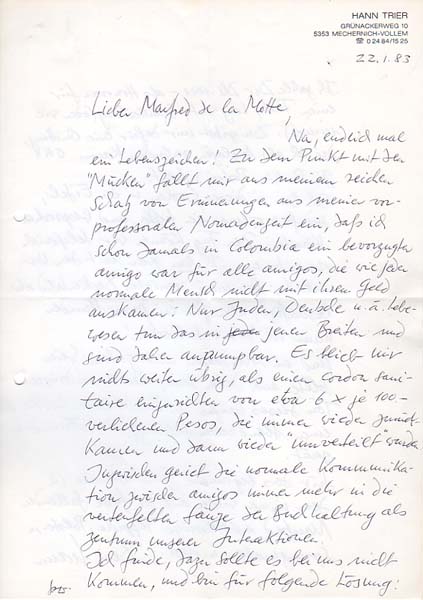 HANN TRIER
GRÜNACKERWEG 10
5353 MECHERNICH-VOLLEM
☎ 0 24 84/15 25
22.1.83
Lieber Manfred de la Motte,
Na, endlich mal
ein Lebenszeichen! Zu dem Punkt mit den
"Mücken" fällt mir aus meinem reichen
Schatz von Erinnerungen aus meiner vor-
professoralen Nomadenzeit ein, daß ich
schon damals in Colombia ein bevorzugter
amigo war für alle amigos, die wie jeder
normale Mensch nicht mit ihrem Geld
auskamen: Nur Juden, Deutsche u. ä. Lebe-
wesen tun das in jenen Breiten und
sind daher anpumpbar. Es blieb mir
nichts weiter übrig, als einen cordon sani-
taire einzurichten von etwa 6 x je 100.-
verliehenen Pesos, die immer wieder zurück-
kamen und dann wieder "umverteilt" wurden.
Inzwischen geriet die normale Kommunika-
tion zwischen amigos immer mehr in die
verteufelten Fänge der Buchhaltung als
Zentrum unserer Interaktionen.
Ich finde, dazu sollte es bei uns nicht
kommen, und bin für folgende Lösung: